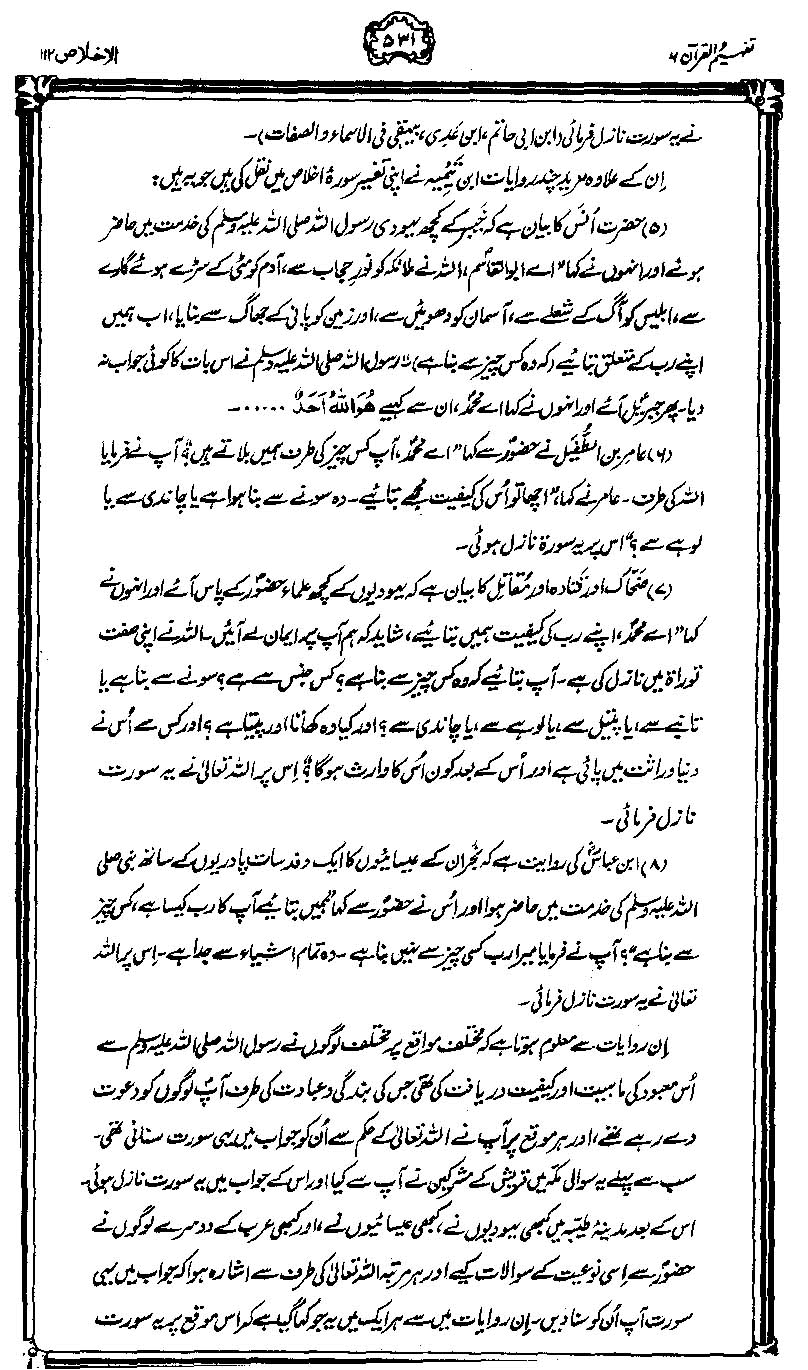 تفہیم القرآن ۶
۵۳۱
الاخلاص ۱۱۲
نے یہ سورت نازل فرمائی (ابن ابی حاتم، ابن عدی، بیہقی فی الاسماء والصفات)۔
اِن کے علاوہ مزید چند روایات ابن تَیمِیہ نے اپنی تفسیر سورۂ اخلاص میں نقل کی ہیں جو یہ ہیں:
(۵) حضرت اَنَس کا بیان ہے کہ خیبر کے کچھ یہودی رسول اللہ صلی اللہ علیہ وسلم کی خدمت میں حاضر
ہوئے اور انہوں نے کہا "اے ابوالقاسم، اللہ نے ملائکہ کو نورِ حجاب سے، آدم کو مٹی کے سڑے ہوئے گارے
سے، ابلیس کو آگ کے شعلے سے، آسمان کو دھوئیں سے، اور زمین کو پانی کے جھاگ سے بنایا، اب ہمیں
اپنے رب کے متعلق بتائیے (کہ وہ کس چیز سے بنا ہے)"۔ رسول اللہ صلی اللہ علیہ وسلم نے اس بات کا کوئی جواب نہ
دیا۔ پھر جبریل آئے اور انہوں نے کہا اے محمدؐ، ان سے کہیے ھُوَاللہُ اَحَدٌ ......۔
(۶) عامر بن الطُّفَیل نے حضورؐ سے کہا "اے محمدؐ، آپ کس چیز کی طرف ہمیں بلاتے ہیں"؟ آپ نے فرمایا
اللہ کی طرف۔ عامر نے کہا، "اچھا تو اُس کی کیفیت مجھے بتائیے۔ وہ سونے سے بنا ہوا ہے یا چاندی سے یا
لوہے سے؟" اس پر یہ سورۃ نازل ہوئی۔
(۷) ضَحّاک اور قَتادہ اور مُقاتل کا بیان ہے کہ یہودیوں کے کچھ علماء حضورؐ کے پاس آئے اور انہوں نے
کہا "اے محمدؐ، اپنے رب کی کیفیت ہمیں بتائیے، شاید کہ ہم آپ پر ایمان لے آئیں۔ اللہ نے اپنی صفت
توراۃ میں نازل کی ہے۔ آپ بتائیے کہ وہ کس چیز سے بنا ہے؟ کس جنس سے ہے؟ سونے سے بنا ہے یا
تانبے سے، یا پیتل سے، یا لوہے سے، یا چاندی سے؟ اور کیا وہ کھاتا اور پیتا ہے؟ اور کس سے اُس نے
دنیا وراثت میں پائی ہے اور اُس کے بعد کون اُس کا وارث ہوگا؟" اِس پر اللہ تعالیٰ نے یہ سورت
نازل فرمائی۔
(۸) ابن عباسؓ کی روایت ہے کہ نَجْران کے عیسائیوں کا ایک وفد سات پادریوں کے ساتھ نبی صلی
اللہ علیہ وسلم کی خدمت میں حاضر ہوا اور اُس نے حضورؐ سے کہا "ہمیں بتائیے آپ کا رب کیسا ہے، کس چیز
سے بنا ہے"؟ آپ نے فرمایا میرا رب کسی چیز سے نہیں بنا ہے۔ وہ تمام اشیاء سے جدا ہے۔ اِس پر اللہ
تعالیٰ نے یہ سورت نازل فرمائی۔
اِن روایات سے معلوم ہوتا ہے کہ مختلف مواقع پر مختلف لوگوں نے رسول اللہ صلی اللہ علیہ وسلم سے
اُس معبود کی ماہیت اور کیفیت دریافت کی تھی جس کی بندگی و عبادت کی طرف آپؐ لوگوں کو دعوت
دے رہے تھے، اور ہر موقع پر آپ نے اللہ تعالیٰ کے حکم سے اُن کو جواب میں یہی سورت سنائی تھی۔
سب سے پہلے یہ سوال مکہ میں قریش کے مشرکین نے آپ سے کیا اور اس کے جواب میں یہ سورت نازل ہوئی۔
اس کے بعد مدینۂ طیّبہ میں کبھی یہودیوں نے، کبھی عیسائیوں نے، اور کبھی عرب کے دوسرے لوگوں نے
حضورؐ سے اِسی نوعیت کے سوالات کیے اور ہر مرتبہ اللہ تعالیٰ کی طرف سے اشارہ ہوا کہ جواب میں یہی
سورت آپ اُن کو سنا دیں۔ اِن روایات میں سے ہر ایک میں یہ جو کہا گیا ہے کہ اس موقع پر یہ سورت